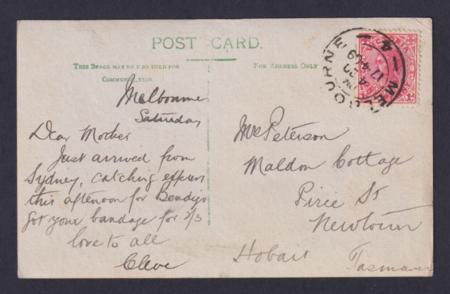 POST CARD.
THIS SPACE MAY BE USED FOR
COMMUNICATION.
FOR ADDRESS ONLY
MELBOURNE
4
17 4 09
Melbourne
Saturday
Dear Mother
Just arrived from
Sydney, catching express
this afternoon for Bendigo
Got your bandage for 7/3
love to all
Cleve
Mrs Peterson
Maldon Cottage
Pirie St
Newtown
Hobart Tasmania